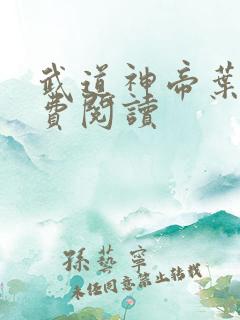 武道神帝葉
費閱讀
孫藝寧
未经同意禁止转载